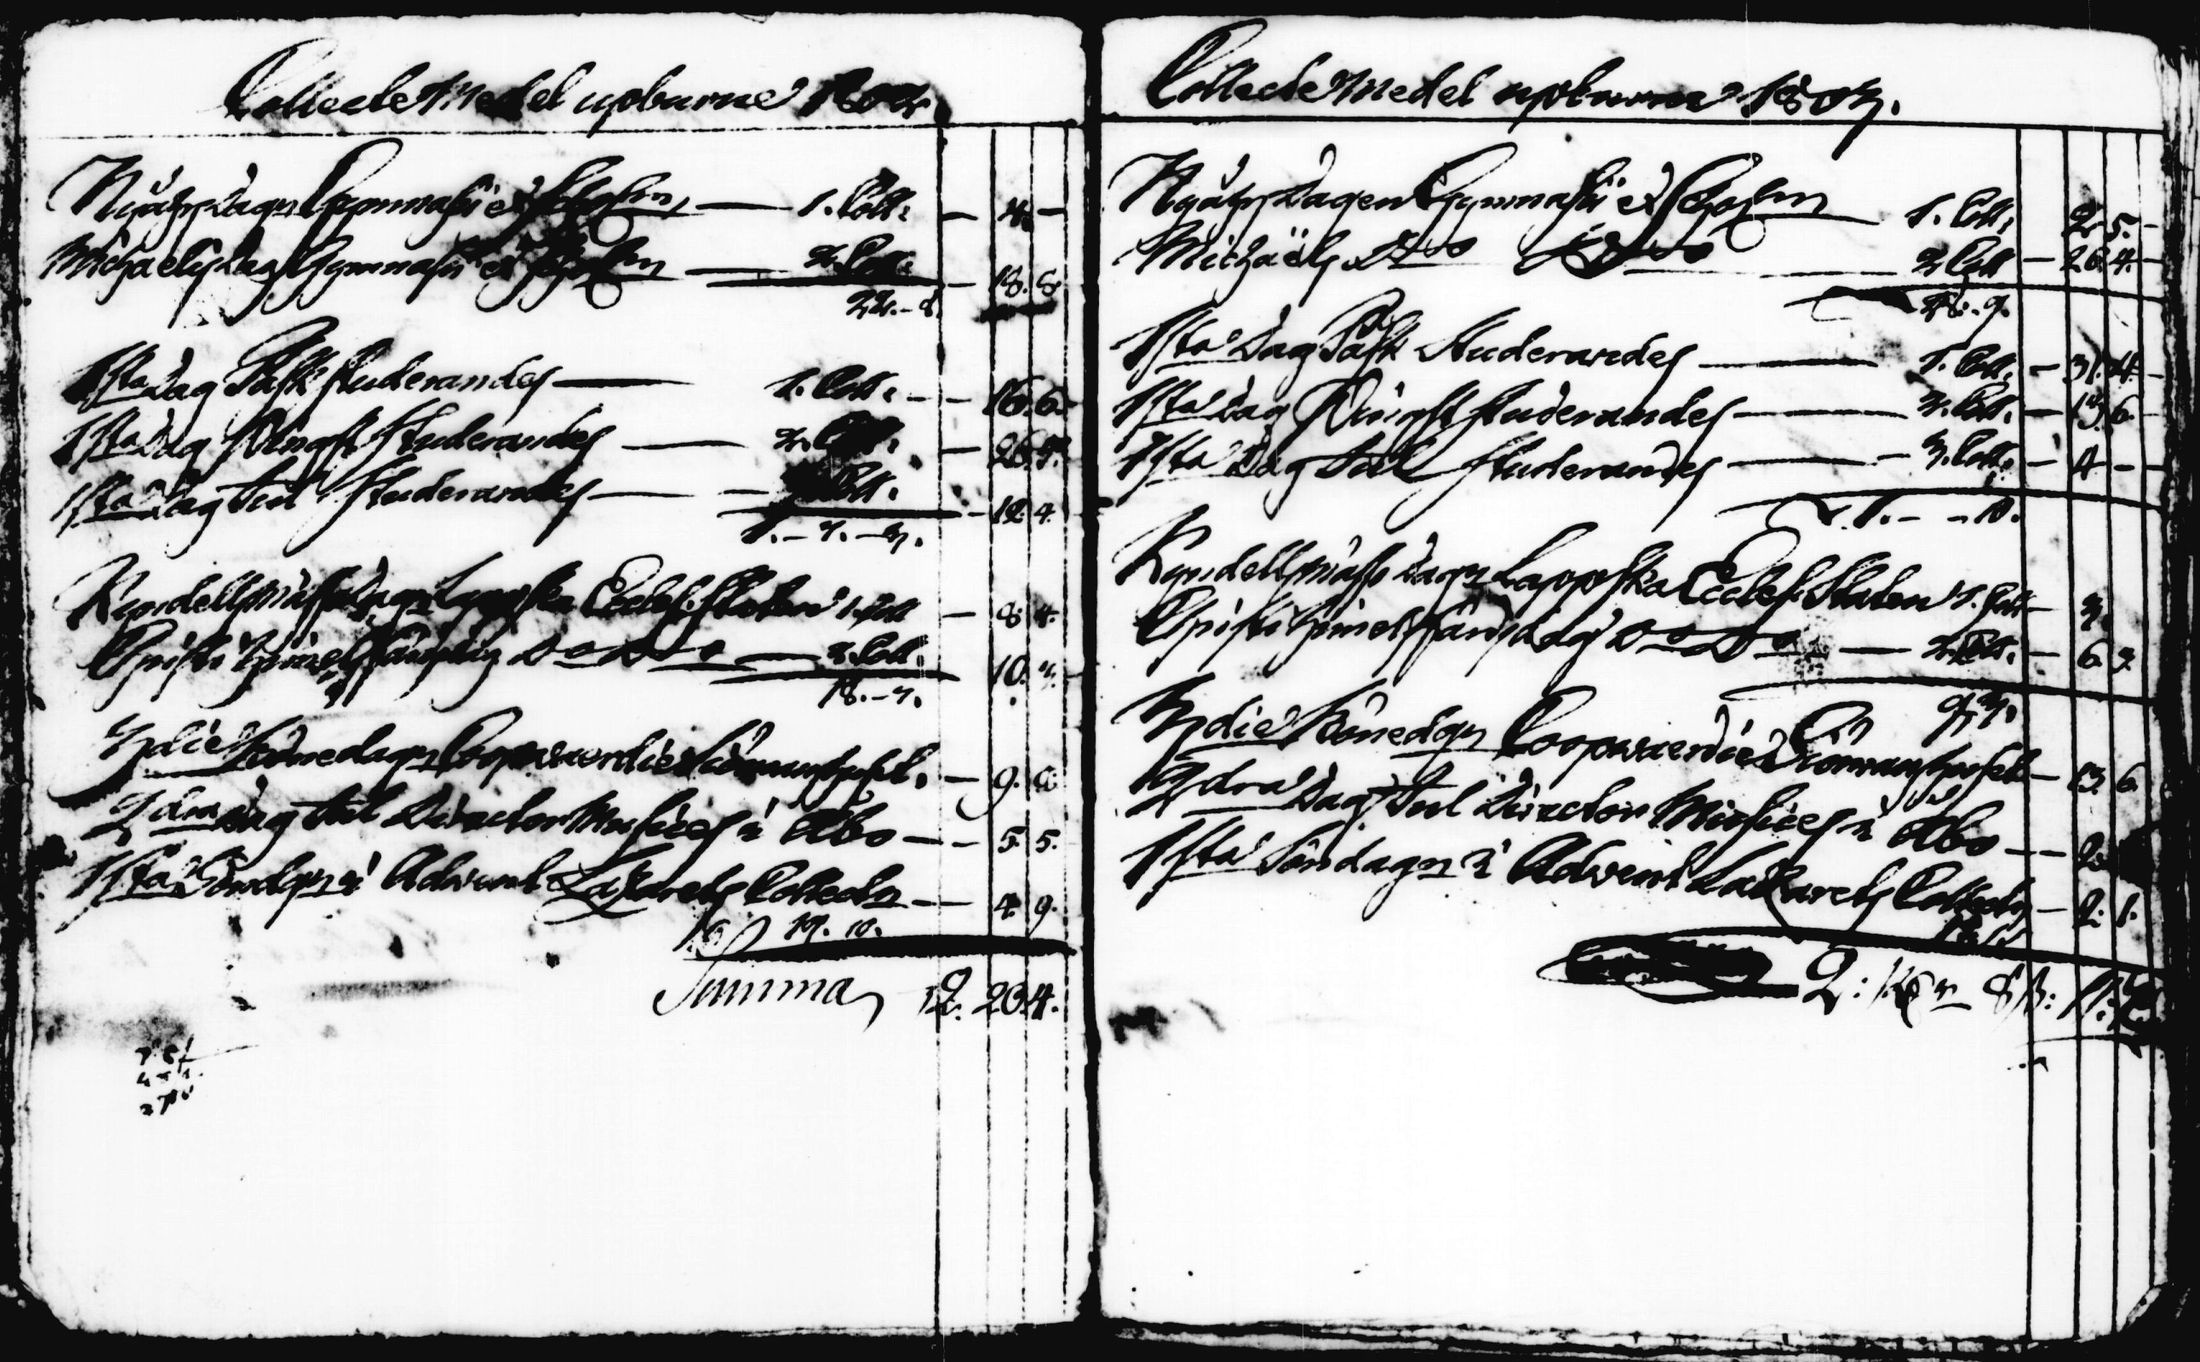 Collecte Medel upburne 1802.
Nyårs dagen Gymnasii et Scholæ — 1. Coll: — 4. —
Michaelis dag Gymnasii et Scholæ — 2. Coll: — 18. 8.
22. – 8.
1sta Dag Påsk Studerandes — 1. Coll: — 16. 6.
1sta Dag Pingst Studerandes — 2. Coll: — 26.
1sta Dag Jul Studerandes — Coll: — 12. 4.
1. – 7. – 3.
Kyndelsmässo Dagen Lappska Eccles. Staten 1. Coll — 8. 4.
Christi Himmelsfärds dag D o D o — 2. Coll: — 10. 3.
18. – 7.
3die Bönedagen Coopvaerdie Siömanshuset. — 9.
2dra Dag Jul Director Musices i Åbo — 5. 5.
1sta Söndagen i Advent Lazarets Collecten — 4. 9.
19. 10.
Summa 2. 20. 4.
Collecte Medel upburne 1803.
Nyårs Dagen Gymnasii et Scholæ 1. Coll: 2. 5. –
Michaëlis D o D o 2 Coll — 26. 4. –
28. 9.
1sta Dag Påsk Studerandes — 1. Coll. — 31. 4. –
1sta Dag Pingst Studerandes — 2. Coll. — 13. 6.
1sta Dag Jul Studerandes — 3. Coll. — 4 – –
1. – – 10.
Kyndelsmässo Dagen Lappska Eccles. Staten 1. Coll — 3.
Christi Himmelsfärds dag D o D o — 2. Coll. — 6. 3.
9. 3.
3die Bönedagen Coopvaerdie Siömanshuset — 13. 6.
2dra Dag Jul Director Musices i Åbo — 2.
1sta Söndagen i Advent Lazarets Collecten — 2. 1.
2: 8 ß: 11.